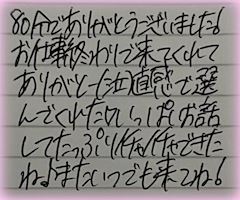 80分でありがとうございました!
お仕事終わりで来てくれて
ありがと~(泣)直感で選
んでくれたいっぱいお話
してたっぷりイチャイチャできた
ね♪またいつでも来てね!